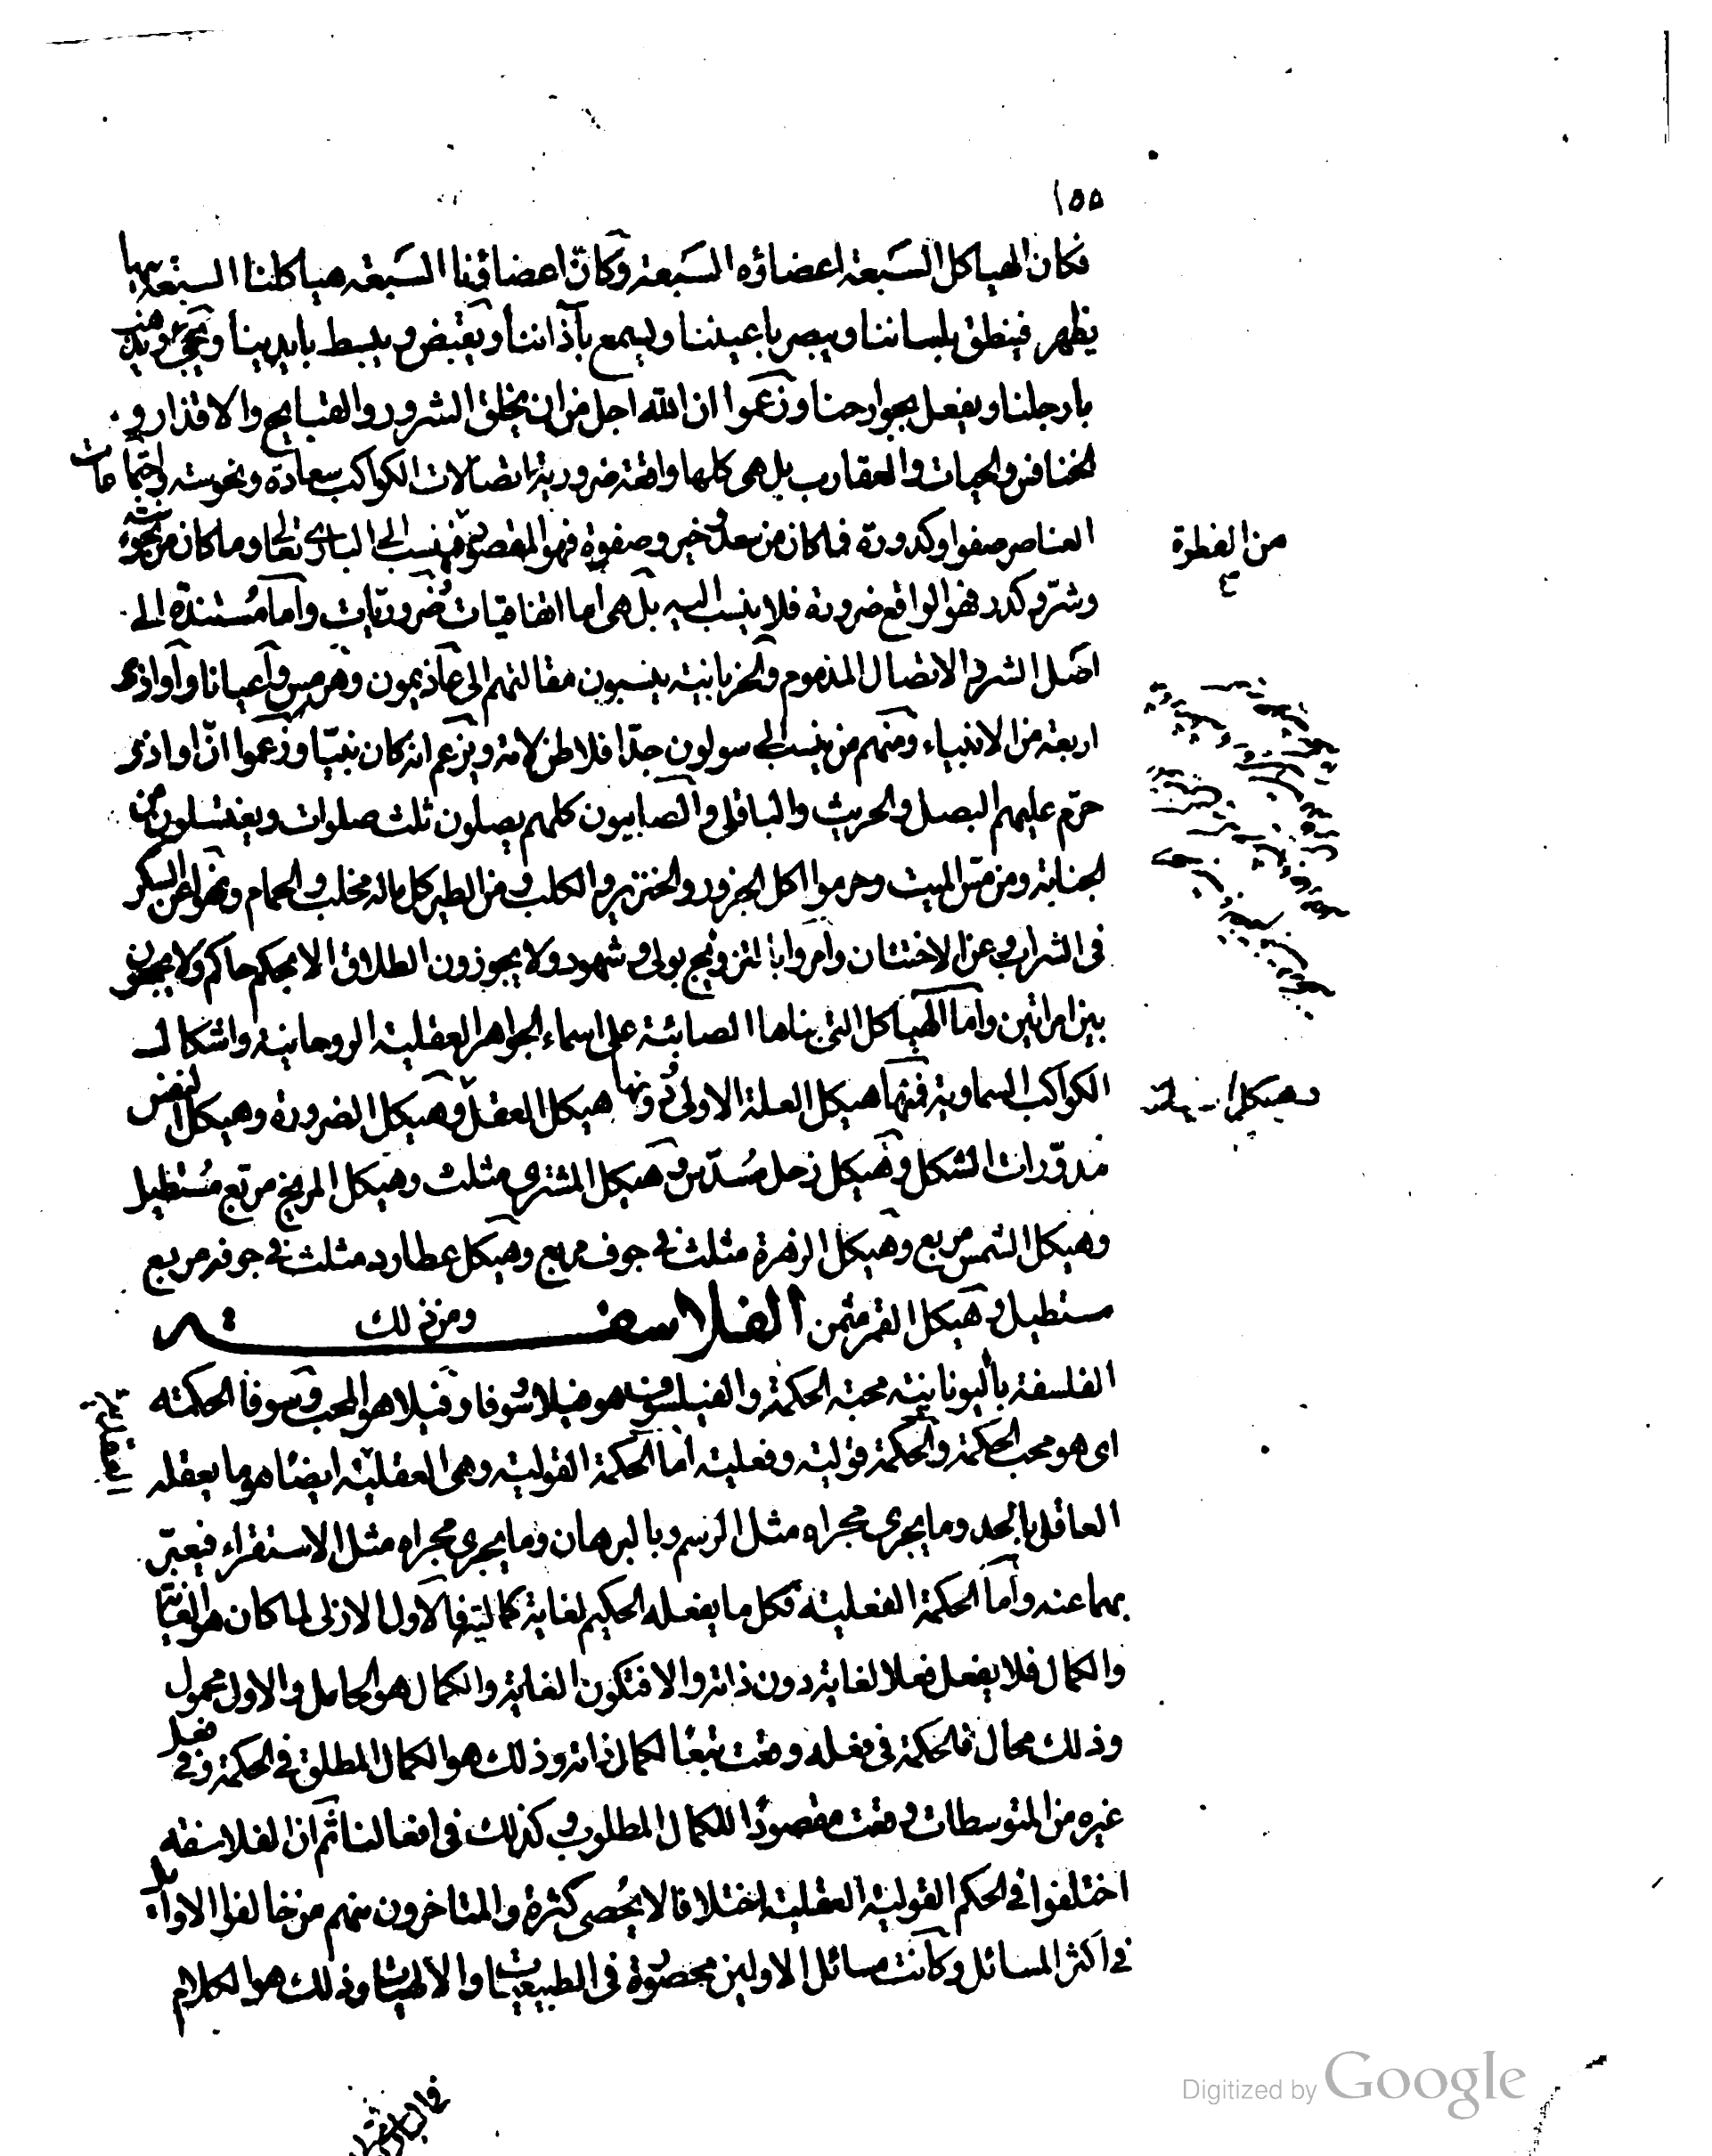 ١٥٥
فكان الهياكل السبعة اعضاؤه السبعة وكان اعضاؤنا السبعة هياكلنا السبعة بها
يظهر فينطق بلساننا ويبصر باعيننا ويسمع بآذاننا ويقبض ويبسط بايدينا ويجئ ويذهب
بارجلنا ويفعل بجوارحنا وزعموا ان الله اجل من ان يخلق الشرور والقبايح والاقذار و
الخنافس والحيات والعقارب بل هى كلها واقعة ضرورية اتصالات الكواكب سعادة ونحوسة واجتماعات
العناصر صفوا وكدورة فما كان من سعد وخير وصفوة فهو المقصود فينسب الى البارى تعالى وما كان من نحوسة
من الفطرة
وشر وكدر فهو الواقع ضرورة فلا ينسب اليه بل هى اما اتفاقيات ضروريات واما مستندة الى
اصل الشر والاتصال المذموم والحرنانية ينسبون مقالتهم الى عاذيمون وهرمس واعيانا واواذى
اربعة من الانبياء ومنهم من ينسب الى سولون جد افلاطن لامه ويزعم انه كان نبيا وزعموا ان اواذى
حرم عليهم البصل والجريث والباقلى والصابيون كلهم يصلون ثلث صلوات ويغتسلون من
الجنابة ومن مس الميت وحرموا اكل الجزور والخنزير والكلب ومن الطير كل ماله مخلب والحمام ونهوا عن السكر
فى الشراب وعن الاختتان وامروا بالتزويج بولى وشهود ولا يجوزون الطلاق الا بحكم حاكم ولا يجمعون
بين امراتين واما الهياكل التى بناها الصابئة على اسماء الجواهر العقلية الروحانية واشكال
الكواكب السماوية فمنها هيكل العلة الاولى ودونها هيكل العقل وهيكل الضرورة وهيكل النفس
مدورات الشكل وهيكل زحل مسدس وهيكل المشترى مثلث وهيكل المريخ مربع مستطيل
وهيكل الشمس مربع وهيكل الزهرة مثلث فى جوف مربع وهيكل عطارد مثلث فى جوفه مربع
مستطيل وهيكل القمر مثمن الفلاسفة ومن ذلك
الفلسفة باليونانية محبة الحكمة والفيلسوف هو فيلا وسوفا وفيلا هو المحب وسوفا الحكمة
اى هو محب الحكمة والحكمة قولية وفعلية اما الحكمة القولية وهى العقلية ايضا هو ما يعقله
العاقل بالحد وما يجرى مجراه مثل الرسم وبالبرهان وما يجرى مجراه مثل الاستقراء فيعبر
بهما عنه واما الحكمة الفعلية فكل ما يفعله الحكيم لغاية كمالية فالاول الازلى لما كان هو الغاية
والكمال فلا يفعل فعلا لغاية دون ذاته والا فتكون الغاية والكمال هو الحامل والاول محمول
وذلك محال فالحكمة فى فعله وقعت تبعا لكمال ذاته وذلك هو الكمال المطلق فى الحكمة وفى فعل
غيره من المتوسطات وقعت مقصودا للكمال المطلوب وكذلك فى افعالنا ثم ان الفلاسفة
اختلفوا فى الحكم القولية العقلية اختلافا لا يحصى كثرة والمتاخرون منهم من خالفوا الاوايل
فى اكثر المسائل وكانت مسائل الاولين محصورة فى الطبيعيات والالهيات وذلك هو الكلام
Digitized by Google